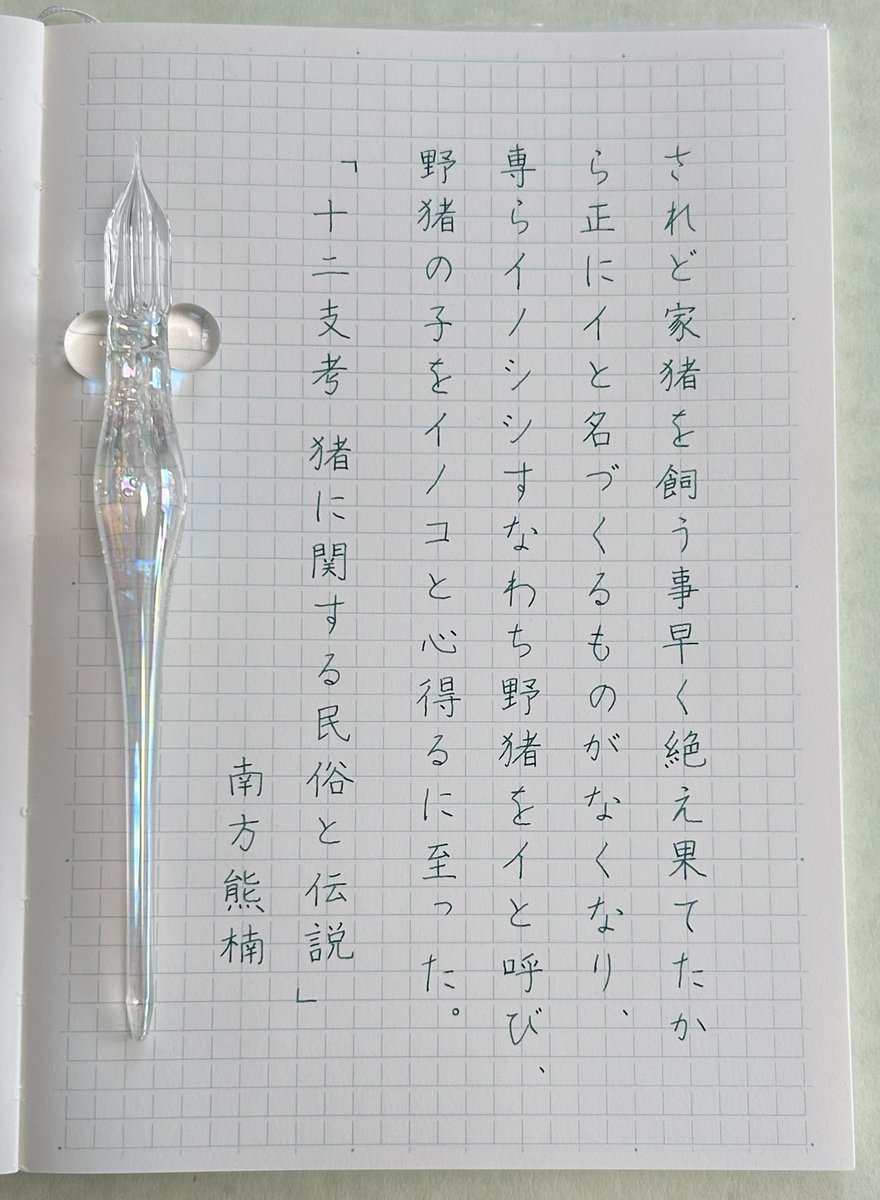 されど家猪を飼う事早く絶え果てたか
ら正にイと名づくるものがなくなり、
専らイノシシすなわち野猪をイと呼び、
野猪の子をイノコと心得るに至った。
「十二支考 猪に関する民俗と伝説」
南方熊楠